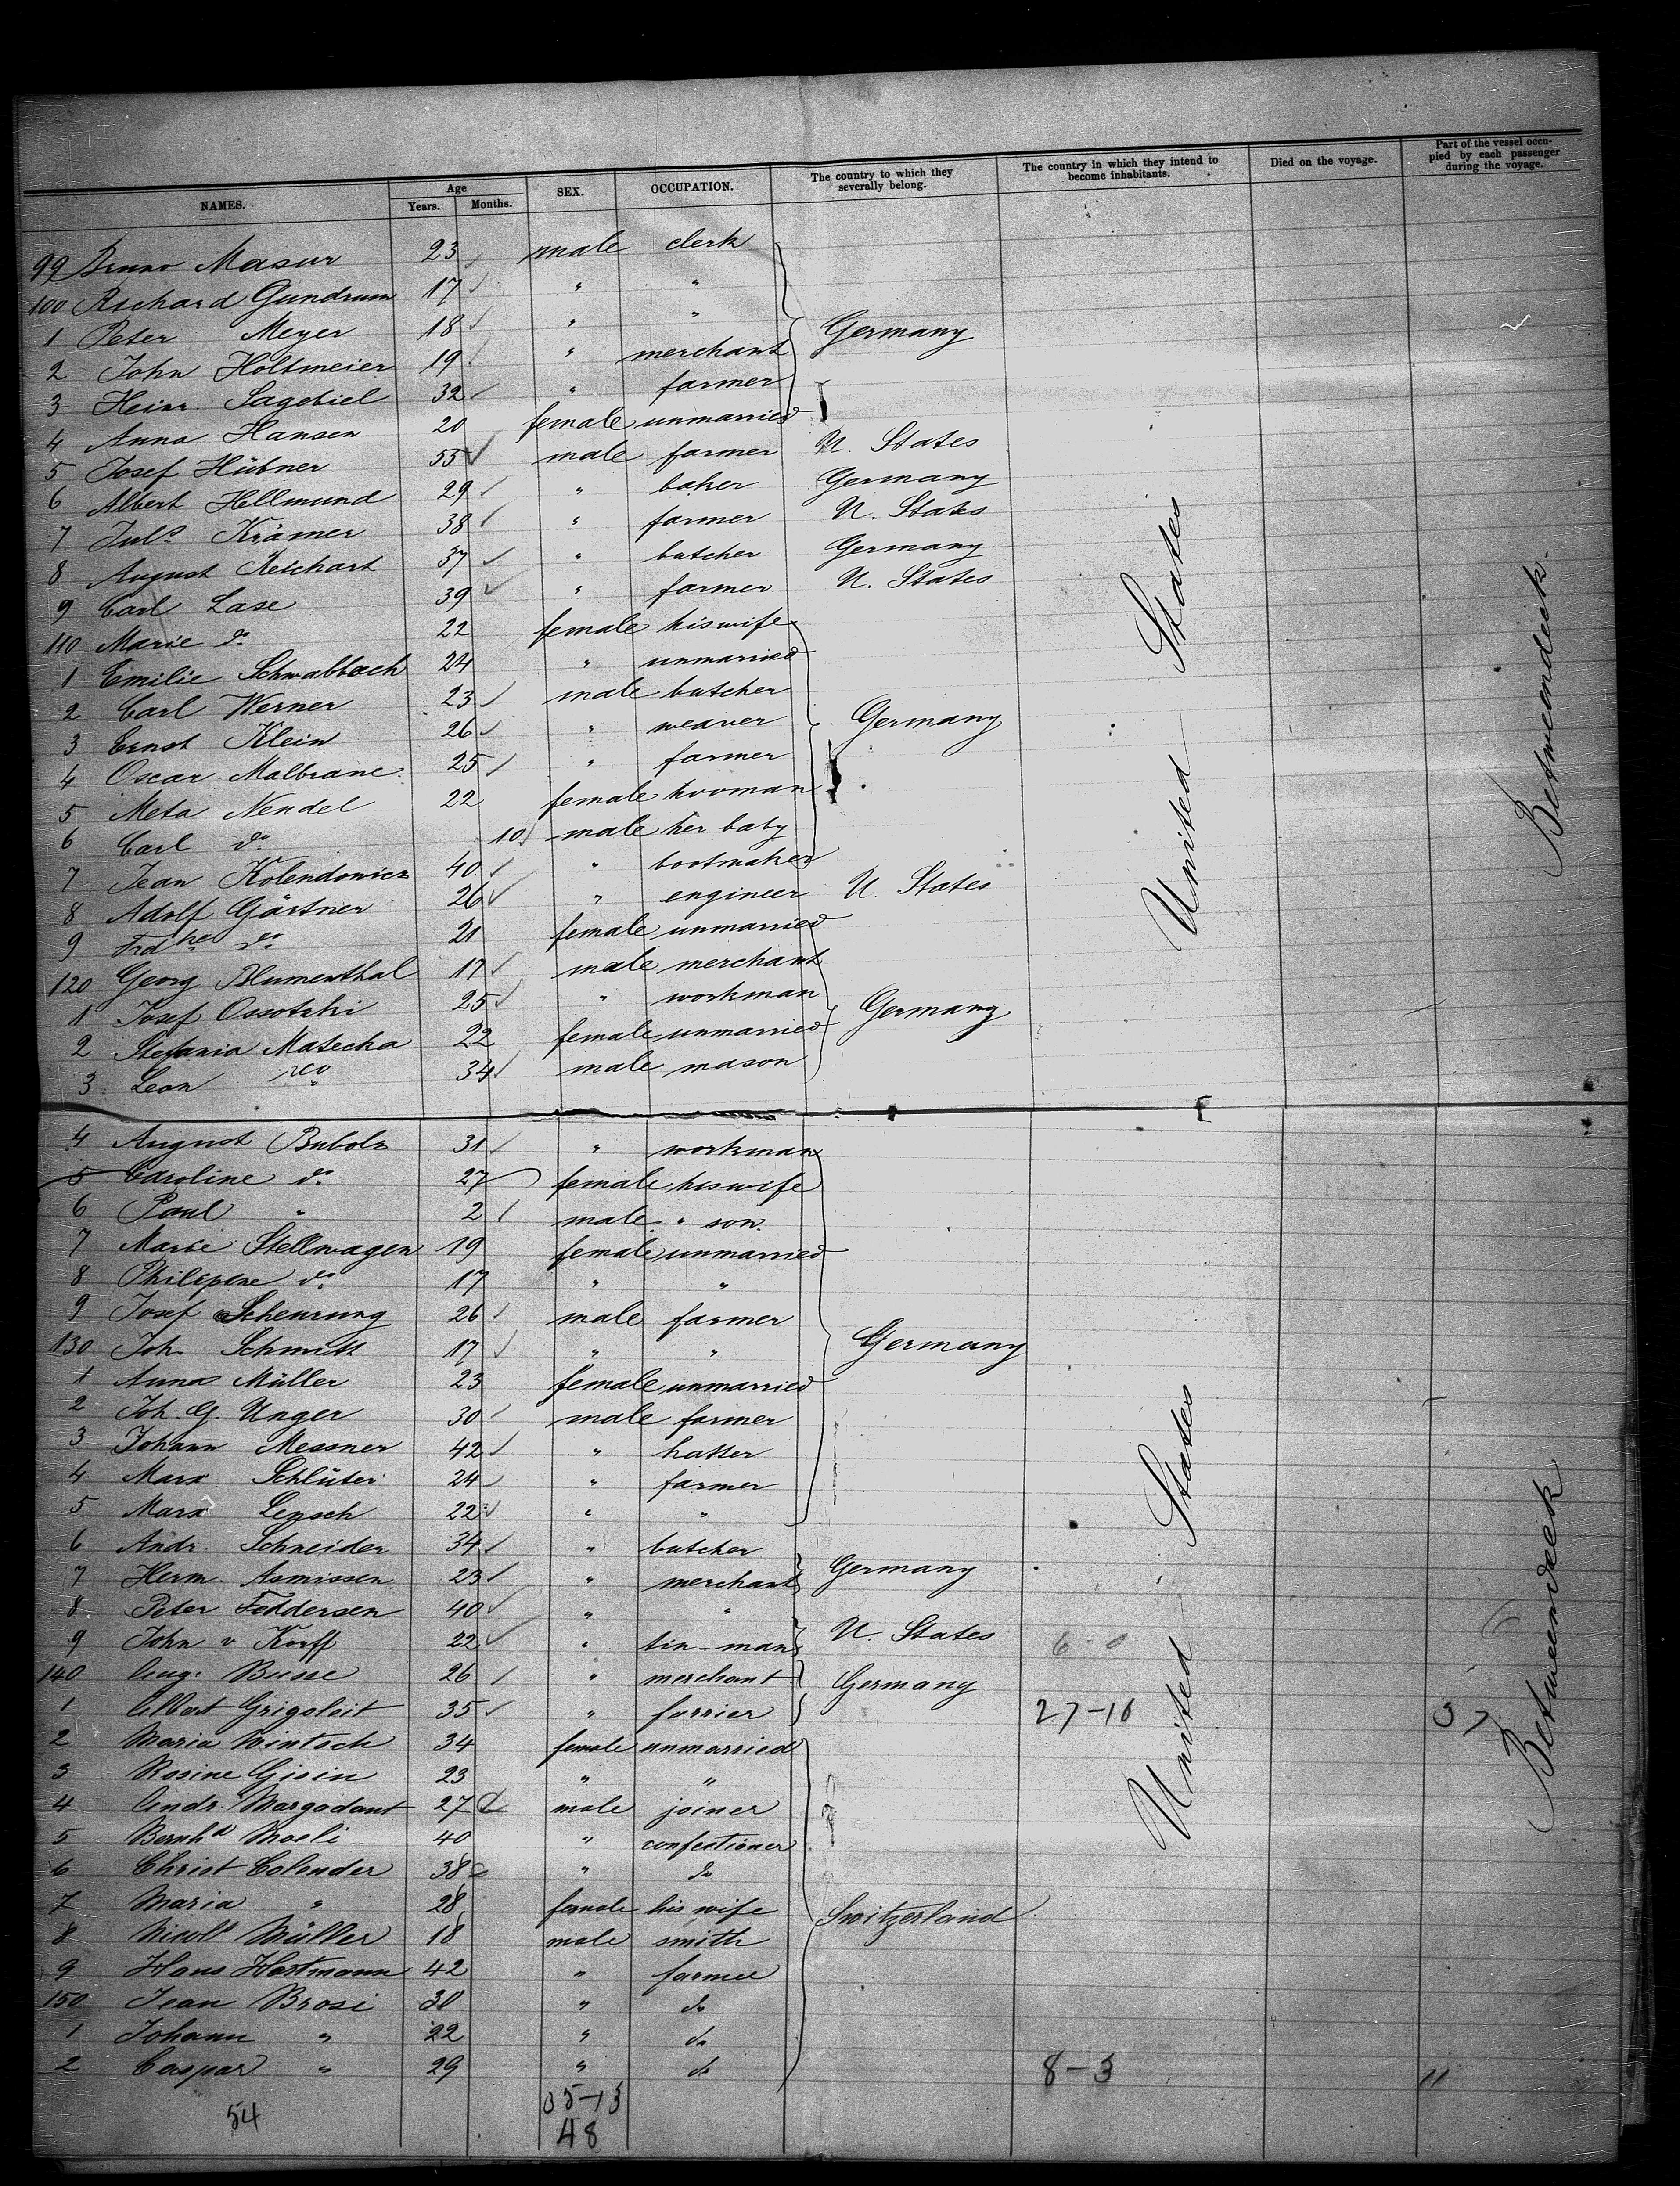 NAMES. Age Years. Months. SEX. OCCUPATION. The country to which they severally belong. The country in which they intend to become inhabitants. Died on the voyage. Part of the vessel occupied by each passenger during the voyage.
99 Bruno Masur 23 male clerk
100 Richard Gundrum 17 " "
1 Peter Meyer 18 " " Germany
2 John Holtmeier 19 " merchant
3 Heinr. Sagebiel 32 " farmer
4 Anna Hansen 20 female unmarried
5 Josef Hübner 55 male farmer U. States
6 Albert Hellmund 29 " baker Germany
7 Juls Krämer 38 " farmer U. States
8 August Reichart 37 " butcher Germany
9 Carl Lase 39 " farmer U. States
110 Marie do 22 female his wife
1 Emilie Schwalbach 24 " unmarried
2 Carl Werner 23 male butcher
3 Ernst Klein 26 " weaver Germany
4 Oscar Malbranc 25 " farmer
5 Meta Nendel 22 female wooman
6 Carl do 10 male her baby
7 Jean Kolendowicz 40 " bootmaker
8 Adolf Gärtner 26 " engineer U. States
9 Frdke do 21 female unmarried
120 Georg Blumenthal 17 male merchant
1 Josef Ossotzki 25 " workman Germany
2 Stefania Matecka 22 female unmarried
3 Leon do 34 male mason
United States
Betweendeck
4 August Bubolz 31 " workman
5 Caroline do 27 female his wife
6 Paul " 2 male " son
7 Marie Stellwagen 19 female unmarried
8 Philipine do 17 " "
9 Josef Scheurung 26 male farmer
130 Joh. Schmitt 17 " " Germany
1 Anna Müller 23 female unmarried
2 Joh. G. Unger 30 male farmer
3 Johann Messner 42 " hatter
4 Marx Schlüter 24 " farmer
5 Marx Lensch 22 " "
6 Andr. Schneider 34 " butcher
7 Herm. Asmissen 23 " merchant Germany
8 Peter Feddersen 40 " "
9 John v Korff 22 " tin-man U. States 6-0
140 Aug. Busse 26 " merchant Germany
1 Albert Grigoleit 35 " farrier 27-10 37
2 Maria Wintsch 34 female unmarried
3 Rosine Gisin 23 " "
4 Andr. Margadant 27 male joiner
5 Bernhd Maeli 40 " confectioner
6 Christ Colender 38 " do
7 Maria " 28 female his wife Switzerland
8 Nicol Müller 18 male smith
9 Hans Hartmann 42 " farmer
150 Jean Brosi 30 " do
1 Johann " 22 " do
2 Caspar " 29 " do 8-3 11
United States
Betweendeck
54 35-13
48